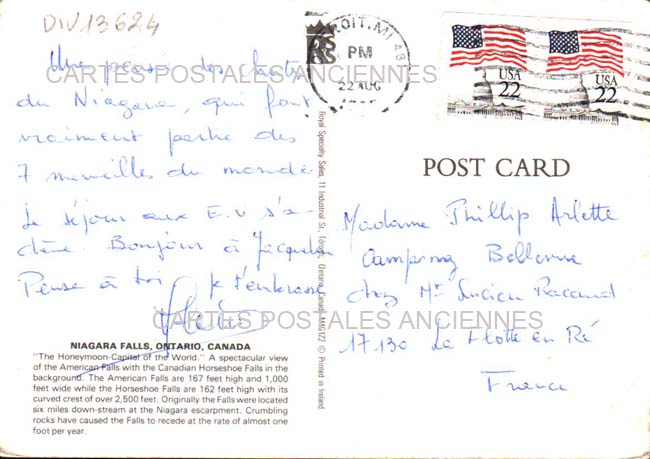 DIV13624
Une pensée des chutes
du Niagara, qui font
vraiment partie des
7 merveilles du monde
Le séjour aux E.U s'a-
chève. Bonjour à Jacqueline
Pense à toi je t'embrasse
CARTES POSTALES ANCIENNES
CARTES POSTALES ANCIENNES
NIAGARA FALLS, ONTARIO, CANADA
"The Honeymoon-Capital of the World." A spectacular view
of the American Falls with the Canadian Horseshoe Falls in the
background. The American Falls are 167 feet high and 1,000
feet wide while the Horseshoe Falls are 162 feet high with its
curved crest of over 2,500 feet. Originally the Falls were located
six miles down-stream at the Niagara escarpment. Crumbling
rocks have caused the Falls to recede at the rate of almost one
foot per year.
Royal Specialty Sales, 11 Industrial St., Toronto, Ontario, Canada M4G 1Z2 © Printed in Ireland
ROIT, MI 48
PM
22 AUG
USA
22
USA
22
POST CARD
Madame Phillip Arlette
Camping Bellevue
chez Mr Lucien Racaud
17130 La Flotte en Ré
France